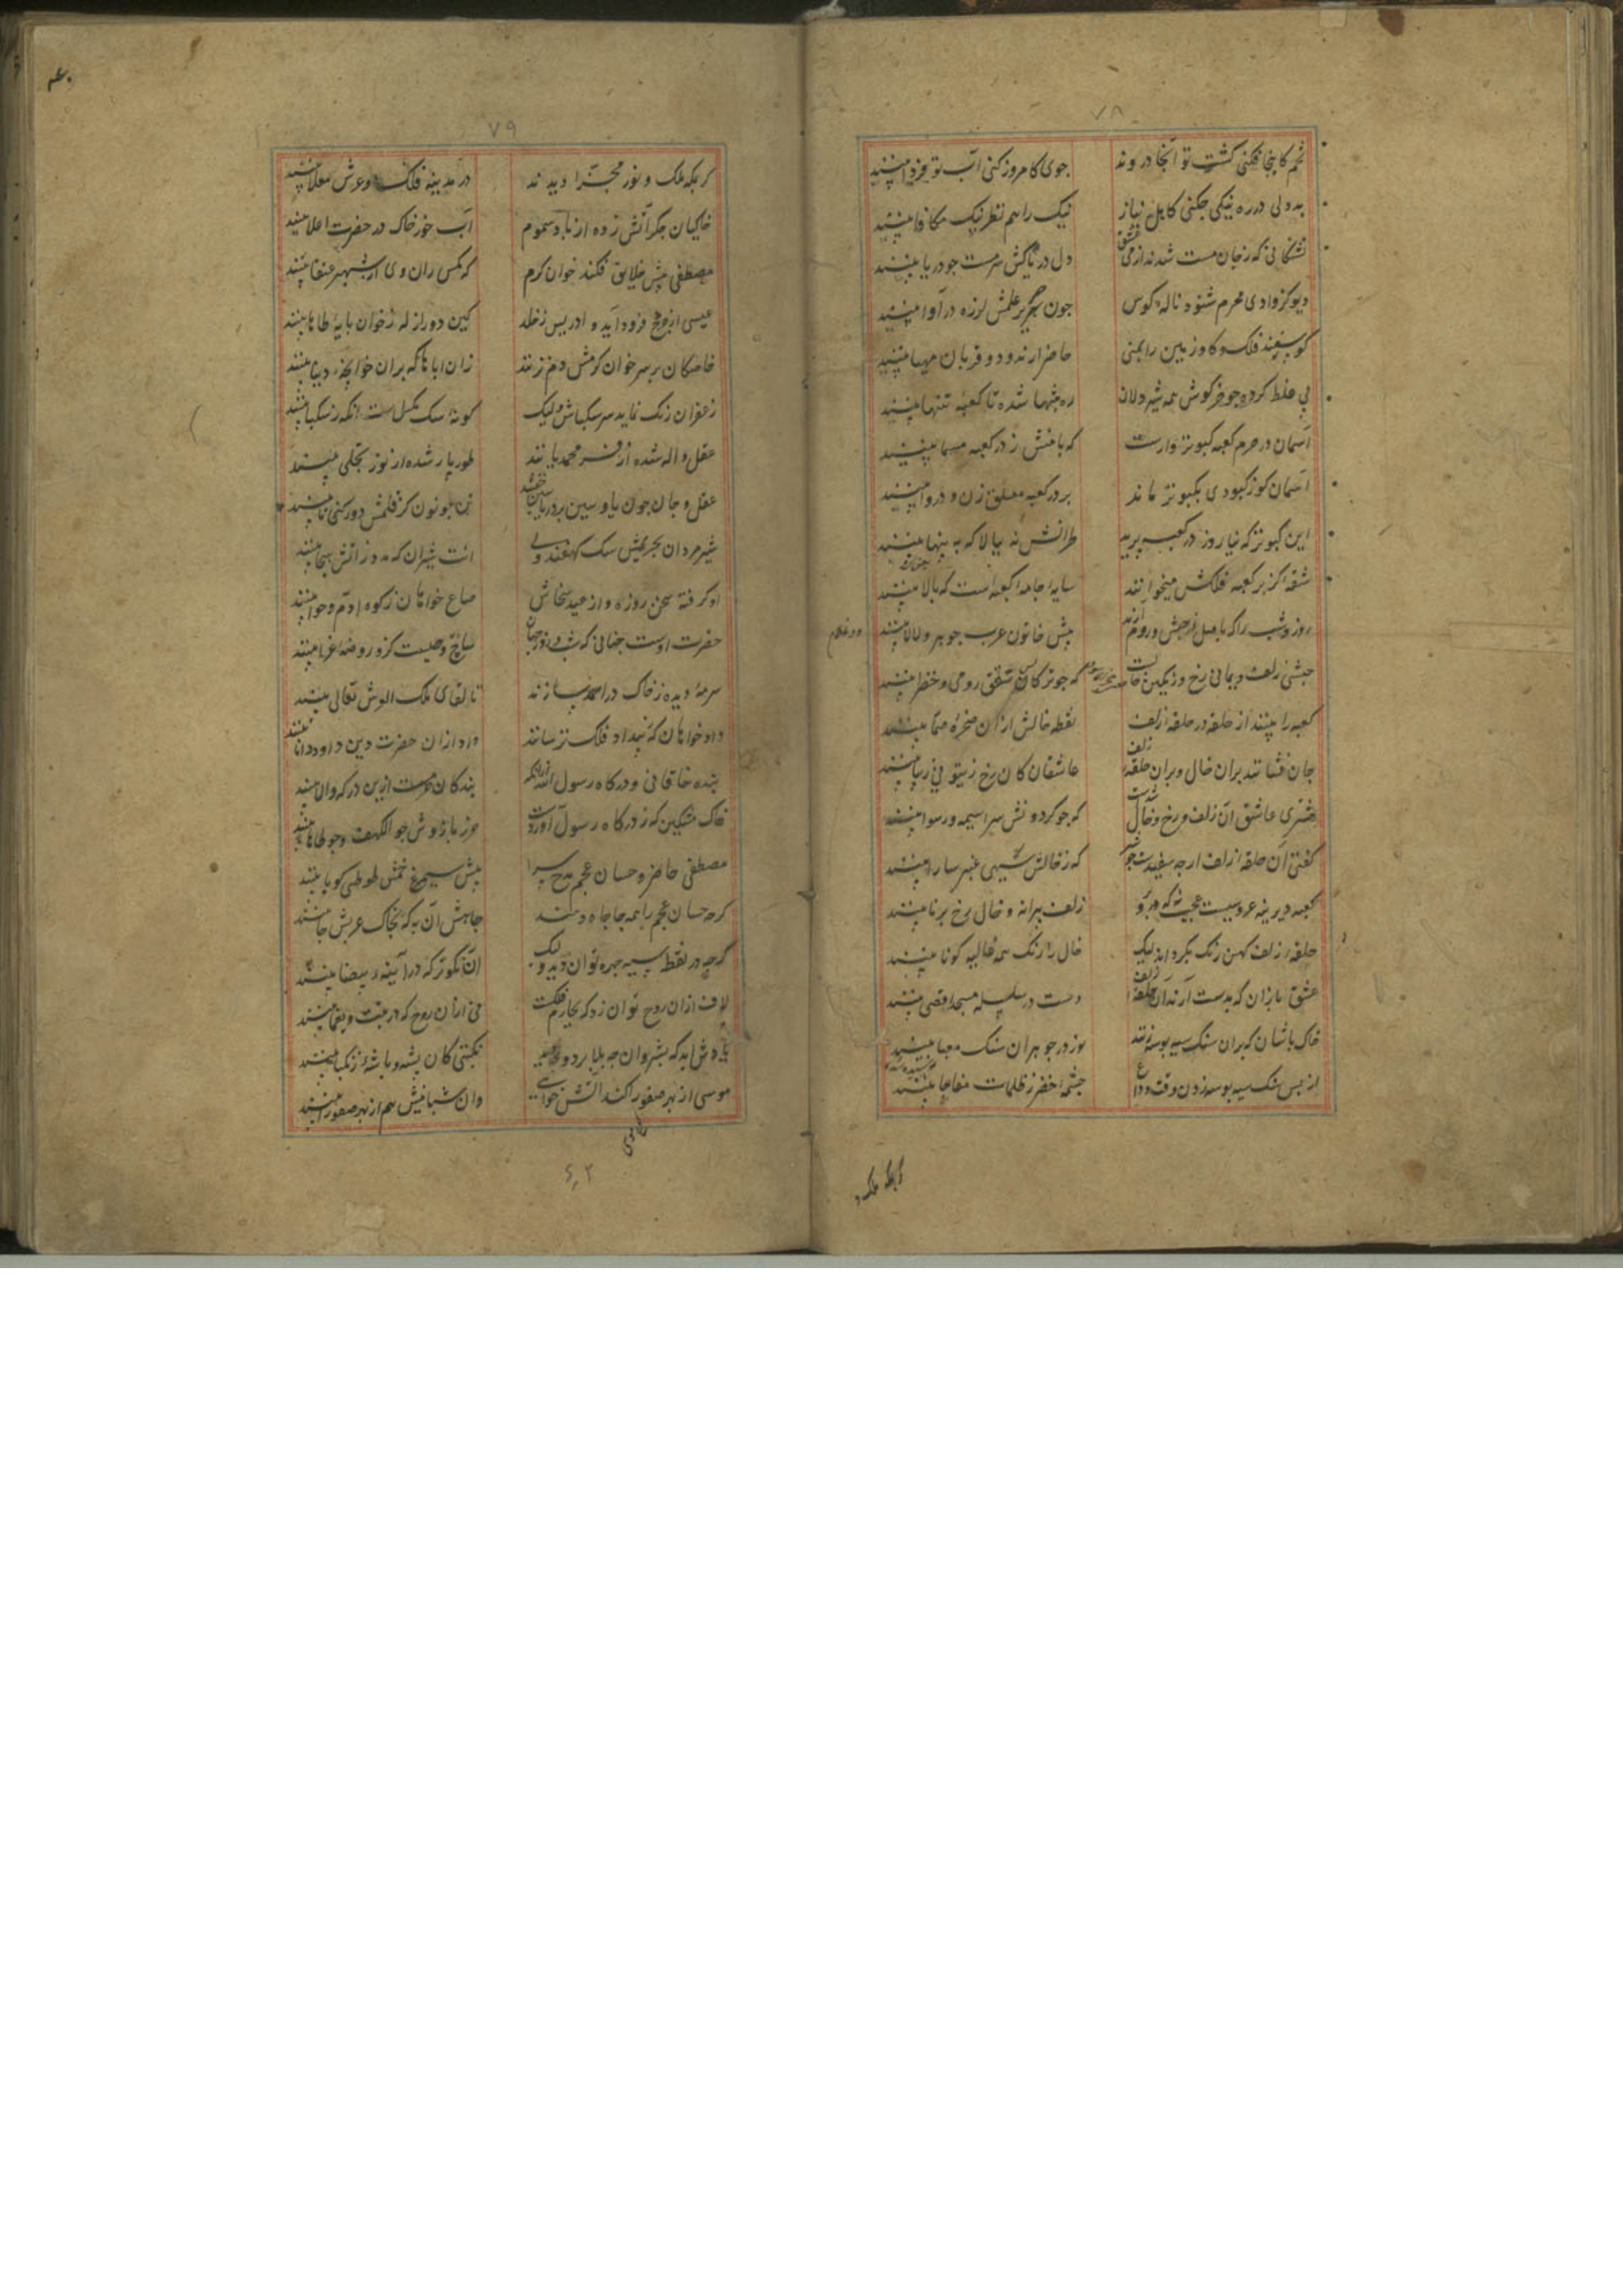 ۷۸
تخم کاینجا فکنی کشت تو آنجا دروند
جوی کامروز کنی آب تو فردا بینند
بدولی در ره نیکی جکنی کاهل نیاز
نیک را هم نظر نیک مکافا بینند
تشنگانی که ز جان مست شدند از می عشق
دل دریاکش سرمست جو دریا بینند
دیو کز وادی محرم شنود ناله کوس
جون حریر علمش لرزه در آوا بینند
کوسفند فلک و کاو زمین را بمنی
حاضر آرند و دو قربان مهیا بینند
پی غلط کرده جو خرکوش همه شیر دلان
ره بتنها شده تا کعبه تنها بینند
آسمان در حرم کعبه کبوتروارست
که بامنش ز در کعبه مسما بینند
آسمان کوز کبودی بکبوتر ماند
بر در کعبه معلق زن و دروا بینند
این کبوتر که نیارد ز در کعبه پرید
طیرانش نه ببالا که به پهنا بینند
شقه کز بر کعبه فلکش میخوانند
سایه جامه کعبه است که بالا بینند
روز و شب را که باصل از حبش و روم آرند
پیش خاتون عرب جوهر و لالا بینند
حبشی زلف و یمانی رخ و زنکین خالست
که جو ترکانش تتق رومی و خضرا بینند
کعبه را بینند از حلقه در حلقه زلف
نقطه خالش از ان صخره صما بینند
جان فشانند بران خال و بران حلقه زلف
عاشقان کان رخ زیتونی زیبا بینند
مشتری عاشق آن زلف و رخ و خال شدست
که جو کردونش سراسیمه و رسوا بینند
کفتی آن حلقه زلف ارجه سفیدست جو شیر
که ز خالش سیهی عنبر سارا بینند
کعبه دیرینه عروسیست عجب نی که برو
زلف پیرانه و خال رخ برنا بینند
حلقه زلف کهن رنک بکرداند لیک
خال را رنک همه غالیه کونا بینند
عشق بازان که بدست آرند آن حلقه زلف
دست در سلسله مسجد اقصی بینند
خاک باشان که بران سنک سیه بوسه زنند
نور در جوهر آن سنک معبا بینند
از بس سنک سیه بوسه زدن وقت وداع
جشمه خضر ز ظلمات مفاجا بینند
کر بمکه فلک و
۷۹
کر بمکه فلک و نور مجزا دیدند
در مدینه فلک و عرش معلا بینند
خاکیان جکر آتش زده از باد سموم
آب خور خاک در حضرت اعلا بینند
مصطفی پیش خلایق فکند خوان کرم
که مکس ران وی از شهپر عنقا بینند
عیسی از جرخ فرود آید و ادریس ز خلد
کین دو را زله ز خوان پایه طاها بینند
خاصکان بر سر خوان کرمش دم نزنند
زان اباها که بران خوانجه دنیا بینند
زعفران رنک نماید سر سکباش ولیک
کونه سک مکس است آنکه ز سکبا بینند
عقل واله شده از فر محمد یابند
طور پاره شده از نور تجلی بینند
عقل و جان جون یا و سین بر در یاسین خفتند
تن جو نون کز قلمش دور کنی تا بینند
شیر مردان بحریمش سک کهفند ولی
انت شیران که مدد ز آتش هیجا بینند
او کرفته سخن روزه و از عید سخاش
صاع خواهان زکوه آدم و حوا بینند
حضرت اوست جهانی که شب و روز جهان
ساج و صیست کزو روضه غرا بینند
سرمه دیده ز خاک در احمد سازند
تا لقای ملک العرش تعالی بینند
داد خواهان که ز بیداد فلک ترسانند
داد از ان حضرت دین داور دانا بینند
بنده خاقانی و درکاه رسول الله
بندکان حرمت ازین درکه والا بینند
خاک مشکین که ز درکاه رسول آوردست
حرز بازوش جو الکهف و جو طاها بینند
مصطفی حاضر و حسان عجم مدح سرا
پیش سیمرغ خمش طوطی کویا بینند
کرجه حسان عجم را همه جا جاه دهند
جاهش آن به که بخاک عربش جا بینند
کرجه در نقطه سیه جهره توان دید ولیک
آن نکوتر که در آیینه بیضا بینند
لاف از ان روح توان زد که بجارم فلکست
نی از ان روح که در تبت و یغما بینند
نکبتی کان پشه و باشه ز نکبا بینند
موسی از بهر صفورا کند آتش خواهی
وان شبانیش هم از بهر صفورا بینند